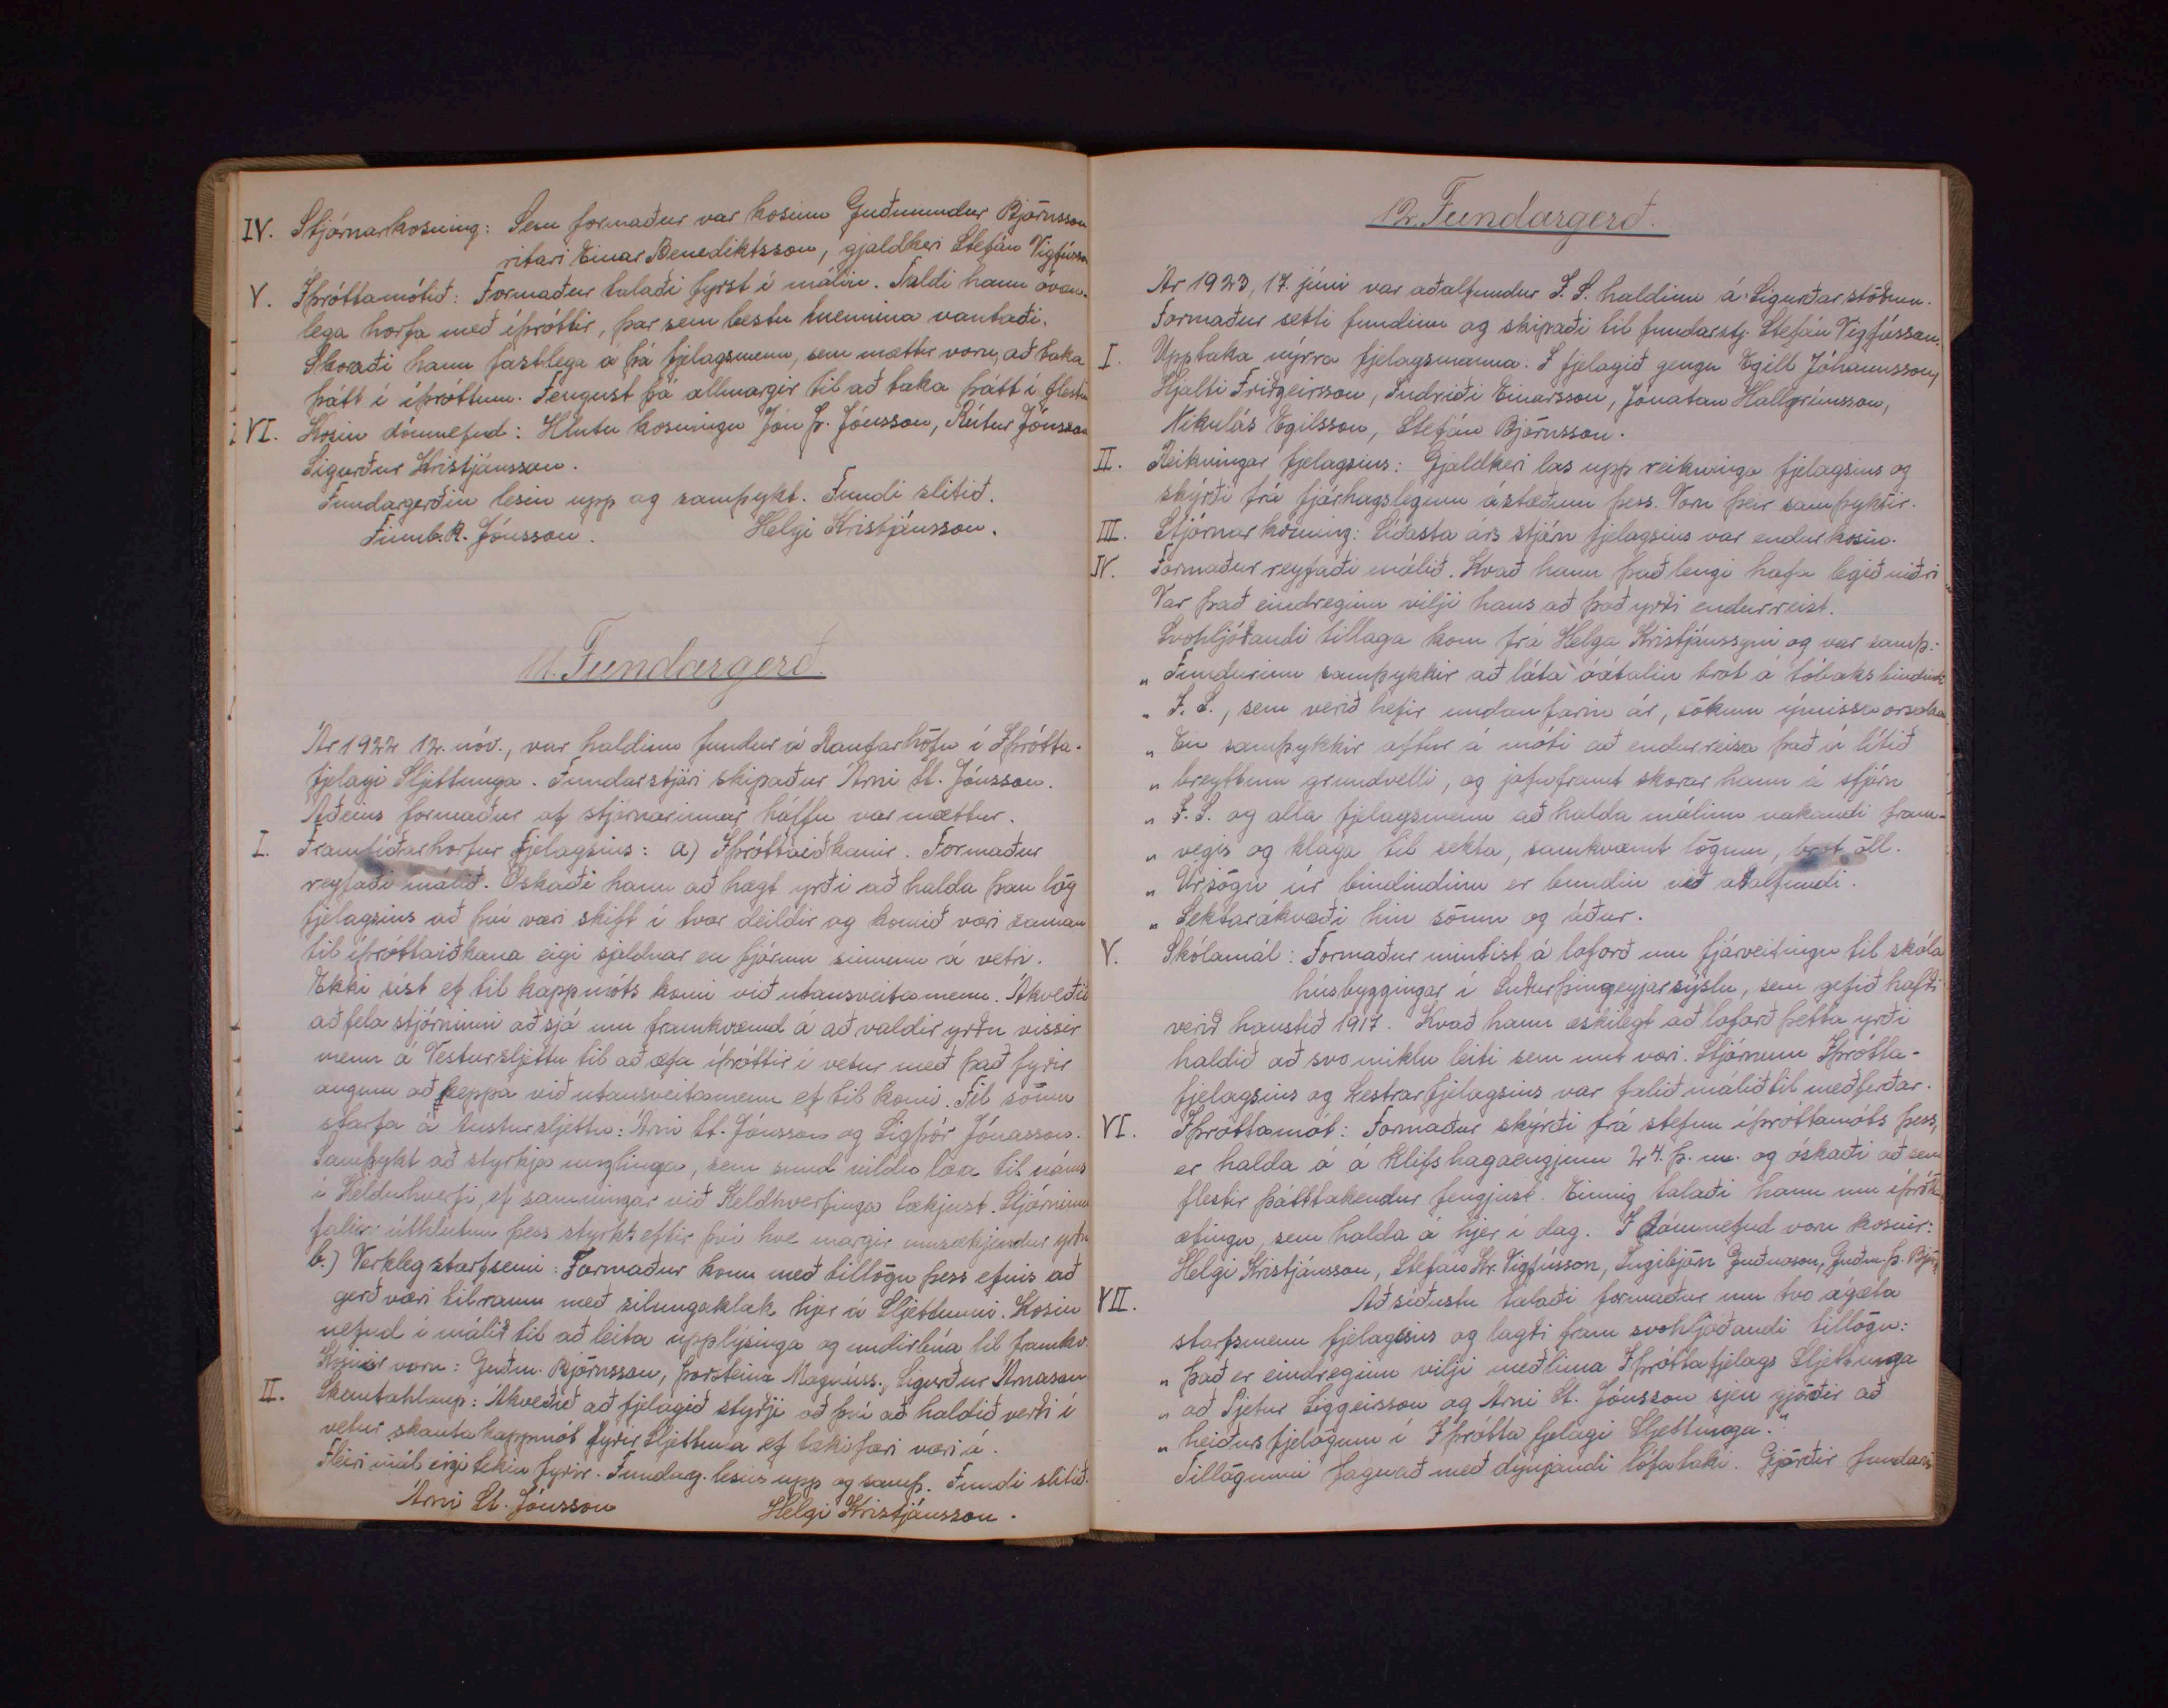 IV. Stjórnarkosning: Sem formaður var kosinn Guðmundur Björnsson
ritari Einar Benediktsson, gjaldkeri Stefán Vigfússon
V. Íþróttamótið: Formaður talaði fyrst í málinu. Taldi hann óvæn-
lega horfa með íþróttir, þar sem bestu mennina vantaði.
Skoraði hann fastlega á þá fjelagsmenn, sem mættir voru, að taka
þátt í íþróttum. Fengust þá allmargir til að taka þátt í flestu
VI. Kosin dómnefnd: Hlutu kosningu Jón Þ. Jónsson, Rútur Jónsson
Sigurður Kristjánsson.
Fundargerðin lesin upp og samþykt. Fundi slitið.
Finnb. R. Jónsson. Helgi Kristjánsson.
11. Fundargerð.
Ár 1922 12. nóv., var haldinn fundur á Raufarhöfn í Íþrótta-
fjelagi Sljettunga. Fundarstjóri skipaður Árni St. Jónsson.
Aðeins formaður af stjórnarinnar hálfu var mættur.
I. Framtíðarhorfur Fjelagsins: a) Íþróttaiðkanir. Formaður
reyfaði málið. Óskaði hann að hægt yrði að halda þau lög
fjelagsins að því væri skift í tvær deildir og komið væri saman
til íþróttaiðkana eigi sjaldnar en fjórum sinnum á vetri.
Ekki síst ef til kappmóts komi við utansveitamenn. Ákveðið
að fela stjórninni að sjá um framkvæmd á að valdir yrðu vissir
menn á Vestursljettu til að æfa íþróttir í vetur með það fyrir
augum að keppa við utansveitamenn ef til komi. Til sömu
starfa á Austursljettu: Árni St. Jónsson og Sigþór Jónasson.
Samþykt að styrkja unglinga, sem sund vildu læra til náms
í Kelduhverfi, ef samningar við Keldhverfinga tækjust. Stjórninni
falin úthlutun þess styrks eftir því hve margir umsækjendur yrðu
b.) Verkleg starfsemi: Formaður kom með tillögu þess efnis að
gerð væri tilraun með silungaklak hjer á Sljettunni. Kosin
nefnd í málið til að leita upplýsinga og undirbúa til framkv.
Kosnir voru: Guðm. Björnsson, Þorsteinn Magnúss., Sigurður Árnason
II. Skautahlaup: Ákveðið að fjelagið styðji að því að haldið verði í
vetur skautakappmót fyrir Sljettuna ef tækifæri væri á.
Fleiri mál eigi tekin fyrir. Fundarg. lesin upp og samþ. Fundi slitið.
Árni St. Jónsson Helgi Kristjánsson.
12. Fundargerð.
Ár 1923, 17. júní var aðalfundur Í. S. haldinn á Sigurðarstöðum.
Formaður setti fundinn og skipaði til fundarstj. Stefán Vigfússon.
I. Upptaka nýrra fjelagsmanna: Í fjelagið gengu Egill Jóhannsson,
Hjalti Friðgeirsson, Indriði Einarsson, Jónatan Hallgrímsson,
Nikulás Egilsson, Stefán Björnsson.
II. Reikningar fjelagsins: Gjaldkeri las upp reikninga fjelagsins og
skýrði frá fjárhagslegum ástæðum þess. Voru þeir samþyktir.
III. Stjórnarkosning: Síðasta árs stjórn fjelagsins var endurkosin.
IV. Formaður reyfaði málið. Kvað hann það lengi hafa legið niðri
Var það eindreginn vilji hans að það yrði endurreist.
Svohljóðandi tillaga kom frá Helga Kristjánssyni og var samþ.:
„ Fundurinn samþykkir að láta óátalin brot á tóbaksbindindi
„ Í. S., sem verið hefir undanfarin ár, sökum ýmissa orsaka.
„ En samþykkir aftur á móti að endurreisa það á lítið
„ breyttum grundvelli, og jafnframt skorar hann á stjórn
„ Í. S. og alla fjelagsmenn að halda málinu vakandi fram-
„ vegis og klaga til sekta, samkvæmt lögum, brot öll.
„ Úrsögn úr bindindinu er bundin við aðalfundi.
„ Sektarákvæði hin sömu og áður.
V. Skólamál: Formaður mintist á loforð um fjárveitingu til skóla
húsbyggingar í Suðurþingeyjarsýslu, sem gefið hafði
verið haustið 1917. Kvað hann æskilegt að loforð þetta yrði
haldið að svo miklu leiti sem unt væri. Stjórnum Íþrótta-
fjelagsins og Lestrarfjelagsins var falið málið til meðferðar.
VI. Íþróttamót: Formaður skýrði frá stefnu íþróttamóts þess,
er halda á á Klifshagaengjum 24. þ. m. og óskaði að sem
flestir þátttakendur fengjust. Einnig talaði hann um íþrótta
æfingu, sem halda á hjer í dag. Í dómnefnd voru kosnir:
Helgi Kristjánsson, Stefán Kr. Vigfússon, Ingibjörn Guðnason, Guðm. Þ. Björ
VII. Að síðustu talaði formaður um tvo ágæta
starfsmenn fjelagsins og lagði fram svohljóðandi tillögu:
„ Það er eindreginn vilji meðlima Íþróttafjelags Sljettunga
„ að Pjetur Siggeirsson og Árni St. Jónsson sjeu gjörðir að
„ heiðursfjelögum í Íþróttafjelagi Sljettunga."
Tillögunni fagnað með dynjandi lófataki. Gjörðir fundarins